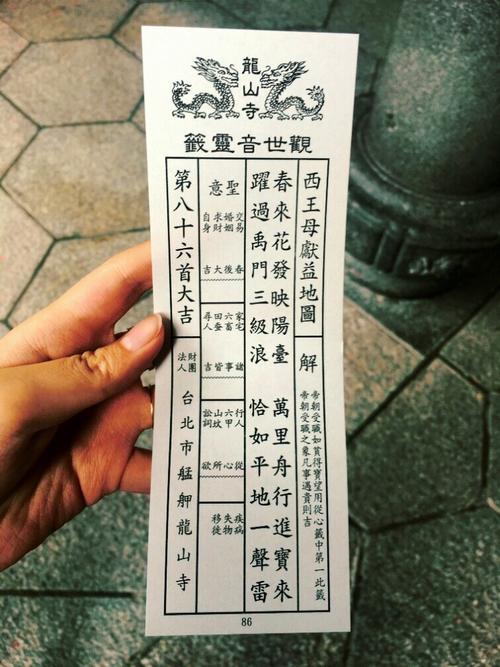 龍山寺
觀世音靈籤
西王母獻益地圖
解
帝朝受職如貧得寶望用從心籤中第一此籤
帝朝受職之象凡事遇貴則吉
春來花發映陽臺 萬里舟行進寶來
躍過禹門三級浪 恰如平地一聲雷
聖意
交易
婚姻
求財
自身
春後大吉
家宅
六畜
田蚕
尋人
諸事皆吉
行人
六甲
山坟
訟詞
從心所欲
疾病
失物
移徙
第八十六首大吉
財團
法人
台北市艋舺龍山寺
86